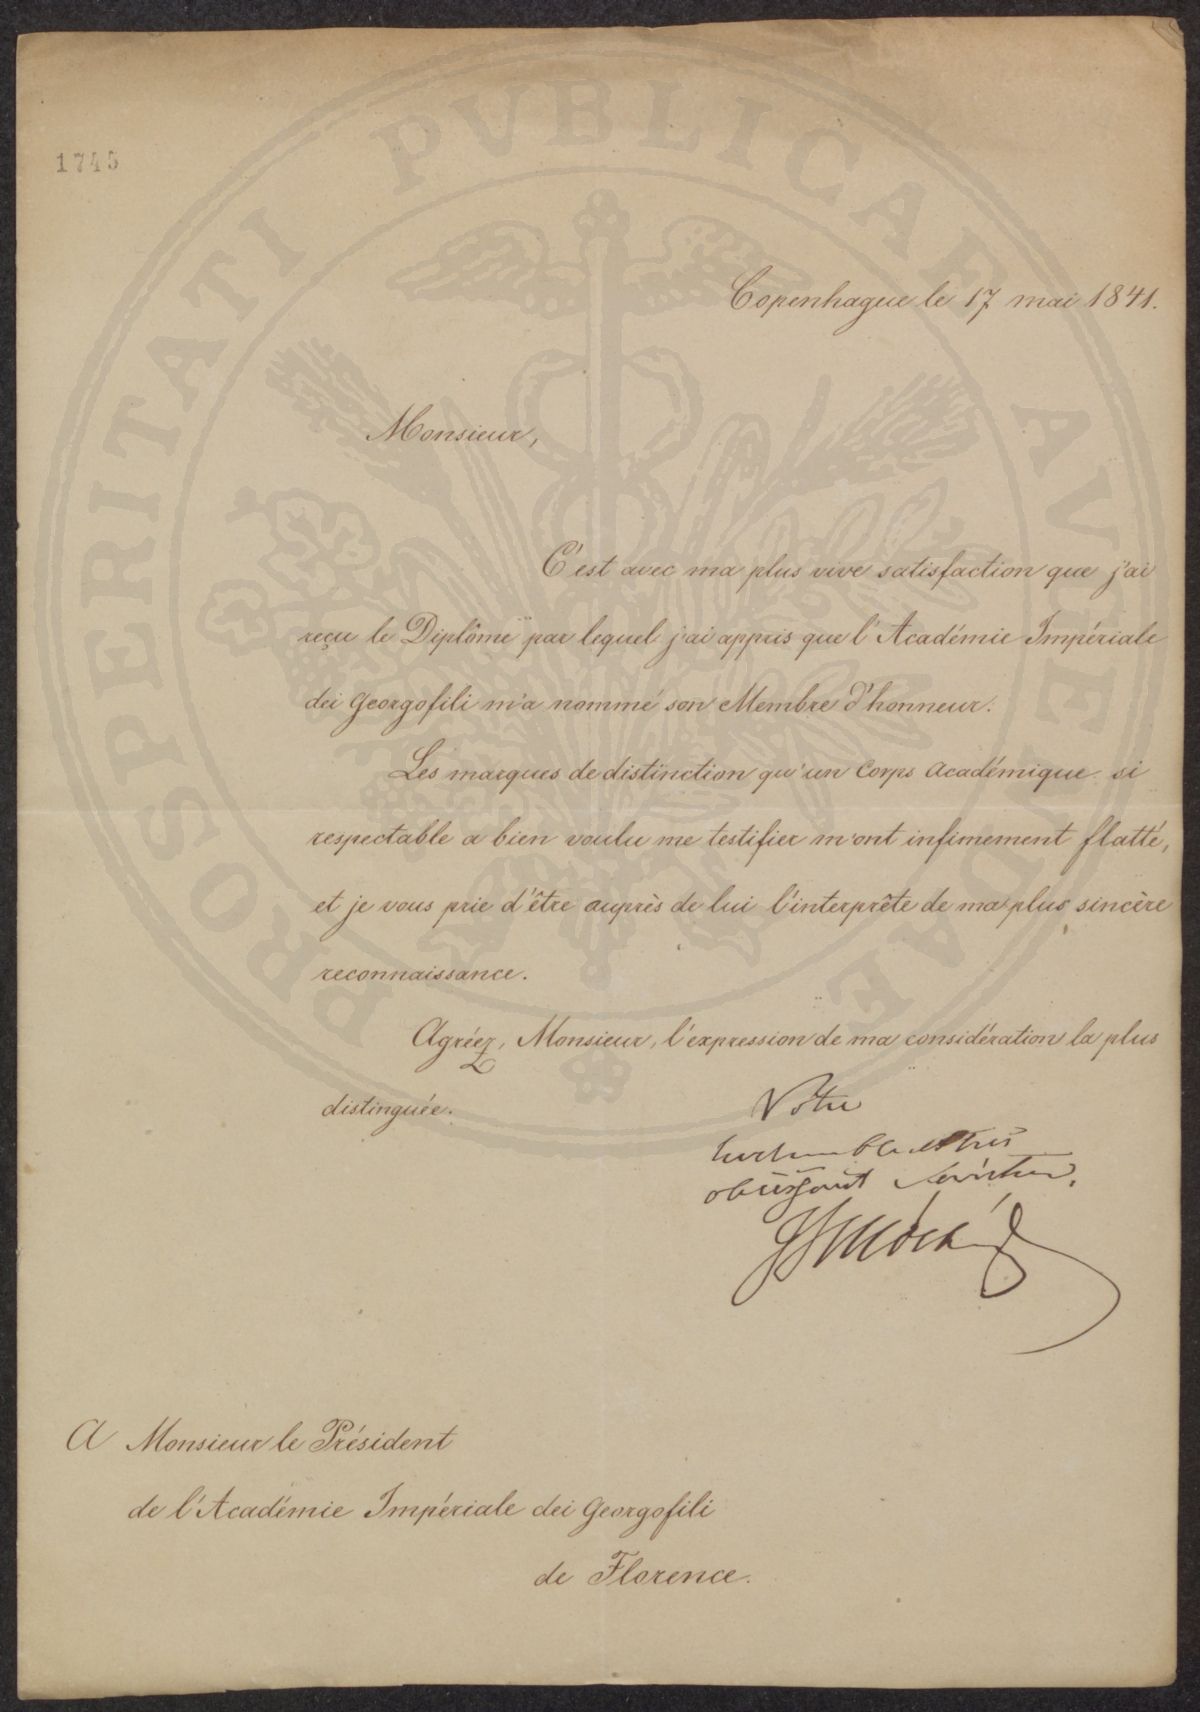 PROSPERITATI PVBLICAE AVGENDAE
1745
Copenhague le 17 mai 1841.
Monsieur,
C'est avec ma plus vive satisfaction que j'ai
reçu le Diplôme par lequel j'ai appris que l'Académie Impériale
dei Georgofili m'a nommé son Membre d'honneur.
Les marques de distinction qu'un Corps Académique si
respectable a bien voulu me testifier m'ont infimement flatté,
et je vous prie d'être auprès de lui l'interprête de ma plus sincère
reconnaissance.
Agréez, Monsieur, l'expression de ma considération la plus
distinguée.
Votre
très humble et très
obéissant serviteur.
A Monsieur le Président
de l'Académie Impériale dei Georgofili
de Florence.